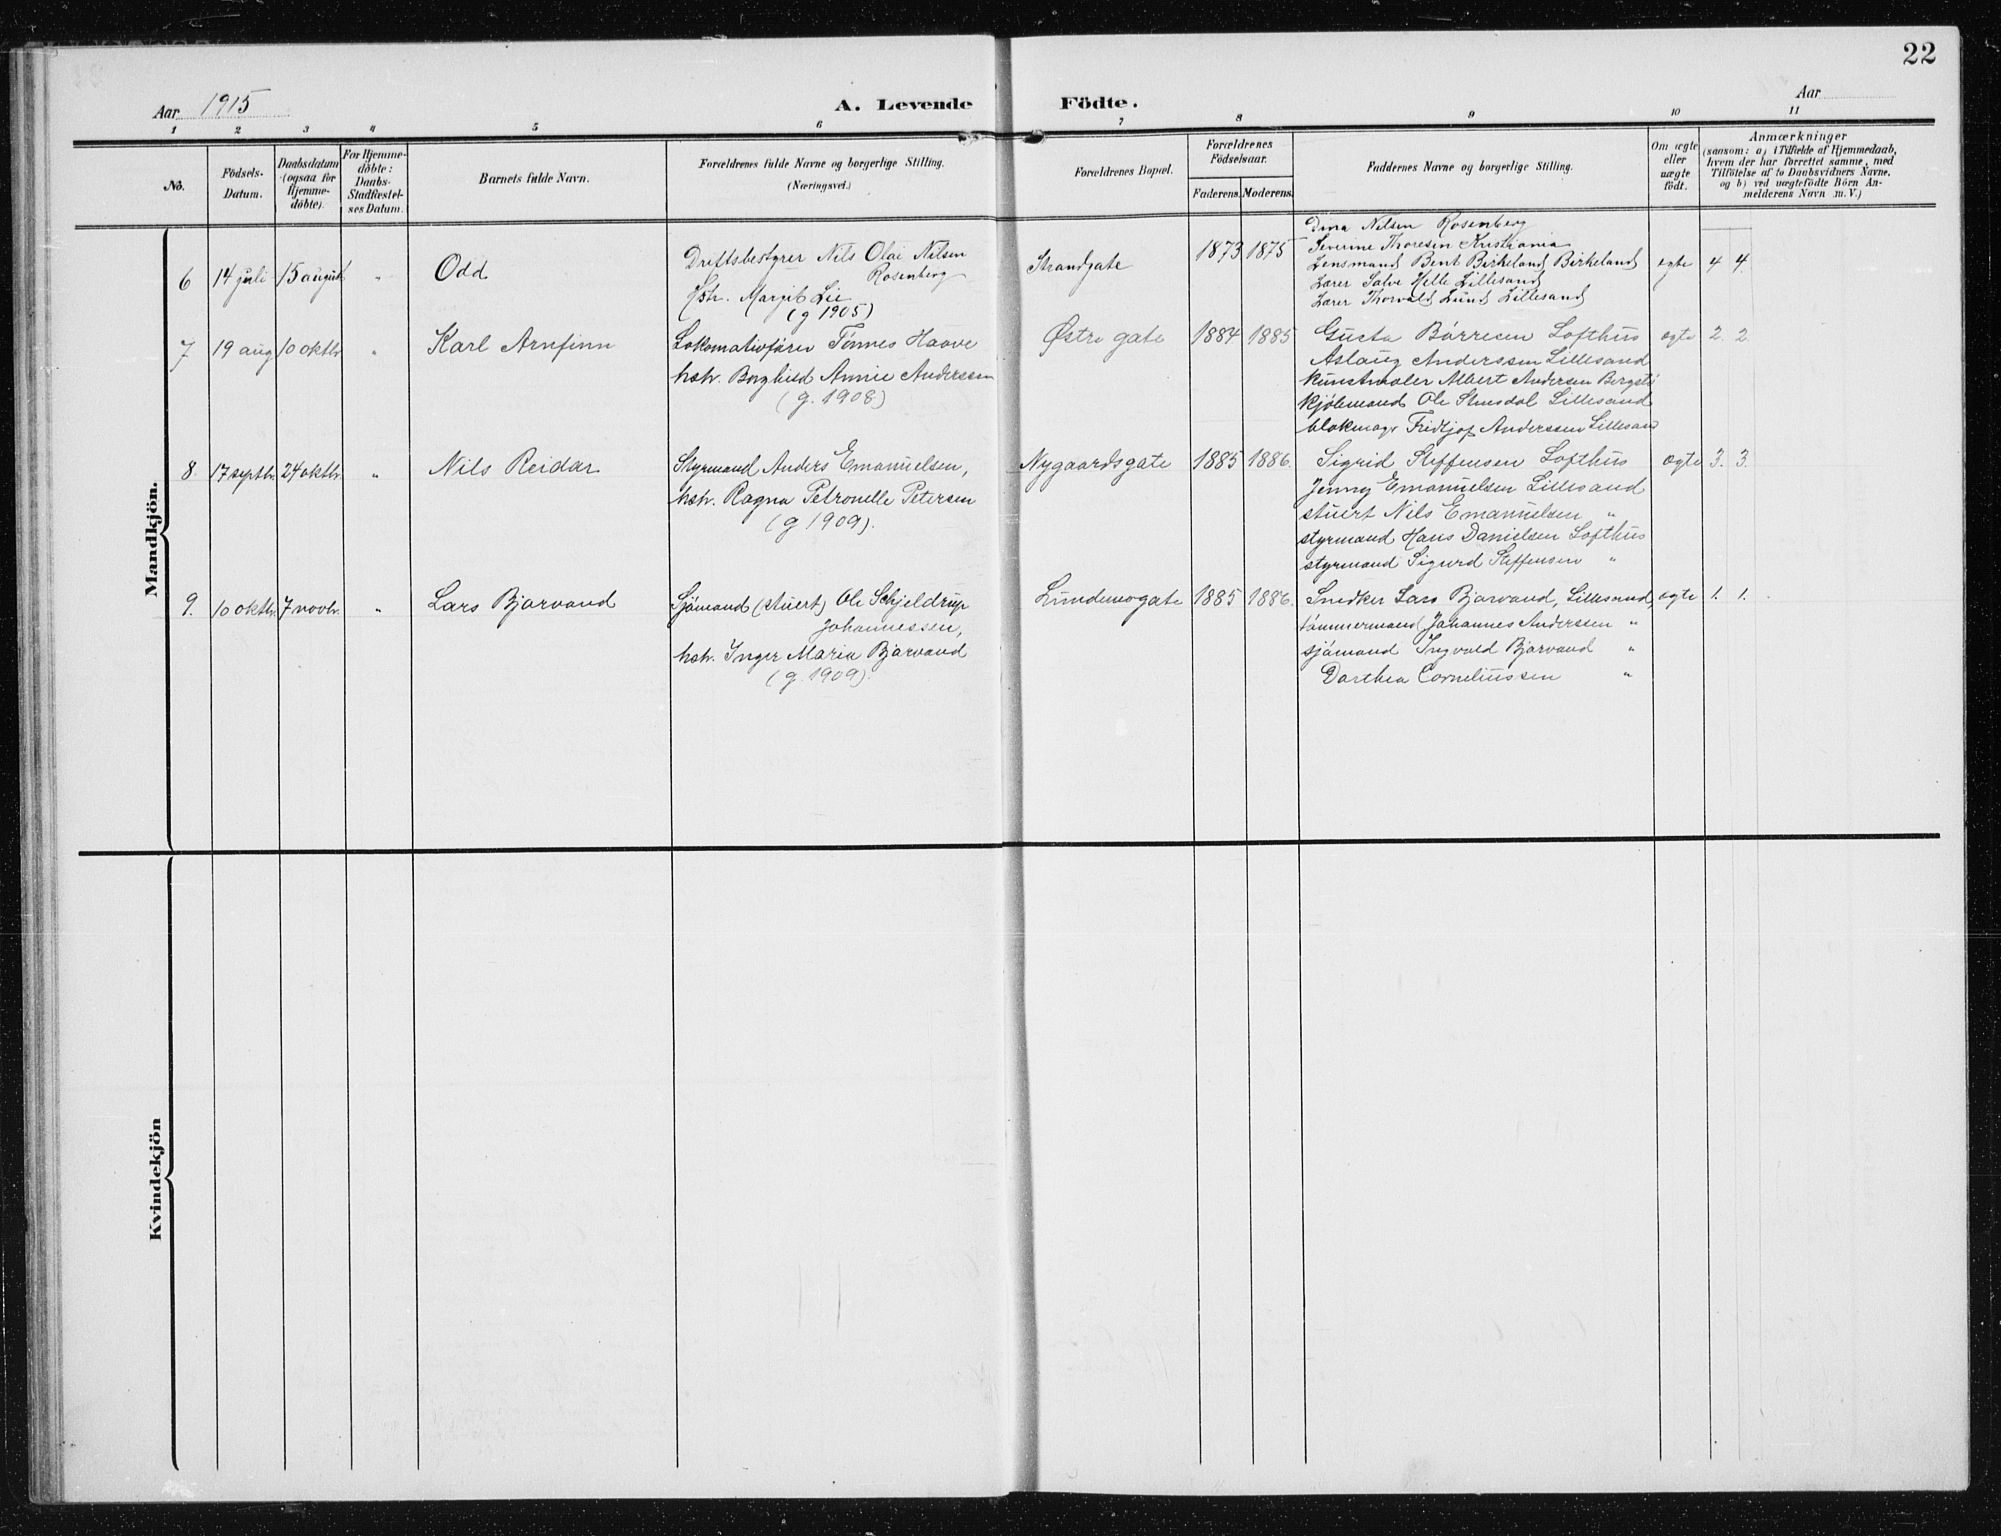 22
Aar 1915
A. Levende Födte.
Aar
1 2 3 4 5 6 7 8 9 10 11
No.
Födsels-
Datum.
Daabsdatum
(ogsaa for
Hjemme-
döbte).
For Hjemme-
döbte:
Daabs-
Stadfæstel-
ses Datum.
Barnets fulde Navn.
Forældrenes fulde Navne og borgerlige Stilling.
(Næringsvei.)
Forældrenes Bopæl.
Forældrenes
Födselsaar.
Faderens. Moderens.
Faddernes Navne og borgerlige Stilling.
Om ægte
eller
uægte
födt.
Anmærkninger
(saasom: a) i Tilfælde af Hjemmedaab,
hvem der har forrettet samme, med
Tilföielse af to Daabsvidners Navne,
og b) ved uægtefödte Börn An-
melderens Navn m. V.)
Mandkjön.
6 14 juli 15 august " Odd
Driftsbestyrer Nils Olai Nilsen
Rosenberg
Hstr. Margit Lie
(g 1905)
Strandgate 1873 1875
Dina Nilsen Rosenberg
Severine Thoresen Kristiania
Lensmand Bent Birkeland Birkeland
Lærer Salve Helle Lillesand
Lærer Thorvald Lund Lillesand
ægte 4 4.
7 19 aug 10 oktbr " Karl Arnfinn
Lokomotivfører Tønnes Haave
hstr. Borghild Annie Anderssen
(g. 1908)
Østre gate 1884 1885
Gusta Börresen Lofthus
Aslaug Anderssen Lillesand
kunstmaler Albert Andersen
kjölemand Ole Lillesand
Fridtjof Anderssen Lillesand
ægte 2. 2.
8 17 septbr. 24 oktbr. " Nils Reidar
Styrmand Anders Emanuelsen,
hstr. Ragna Petronelle Petersen
(g 1909).
Nygaardsgate 1885 1886.
Sigrid Steffensen Lofthus
Jenny Emanuelsen Lillesand
stuert Nils Emanuelsen "
styrmand Hans Danielsen Lofthus
styrmand Sigurd Steffensen "
ægte 3. 3.
9. 10 oktbr. 7 novbr. " Lars Bjørvand
Sjømand (stuert) Ole Schjeldrup
Johannessen,
hstr. Inger Marie Bjørvand
(g. 1909).
Lundemogate 1885 1886.
Snedker Lars Bjørvand, Lillesand,
tømmermand Johannes Andersen "
sjømand Ingvald Bjørvand "
Dorthea Corneliussen "
ægte 1. 1.
Kvindekjön